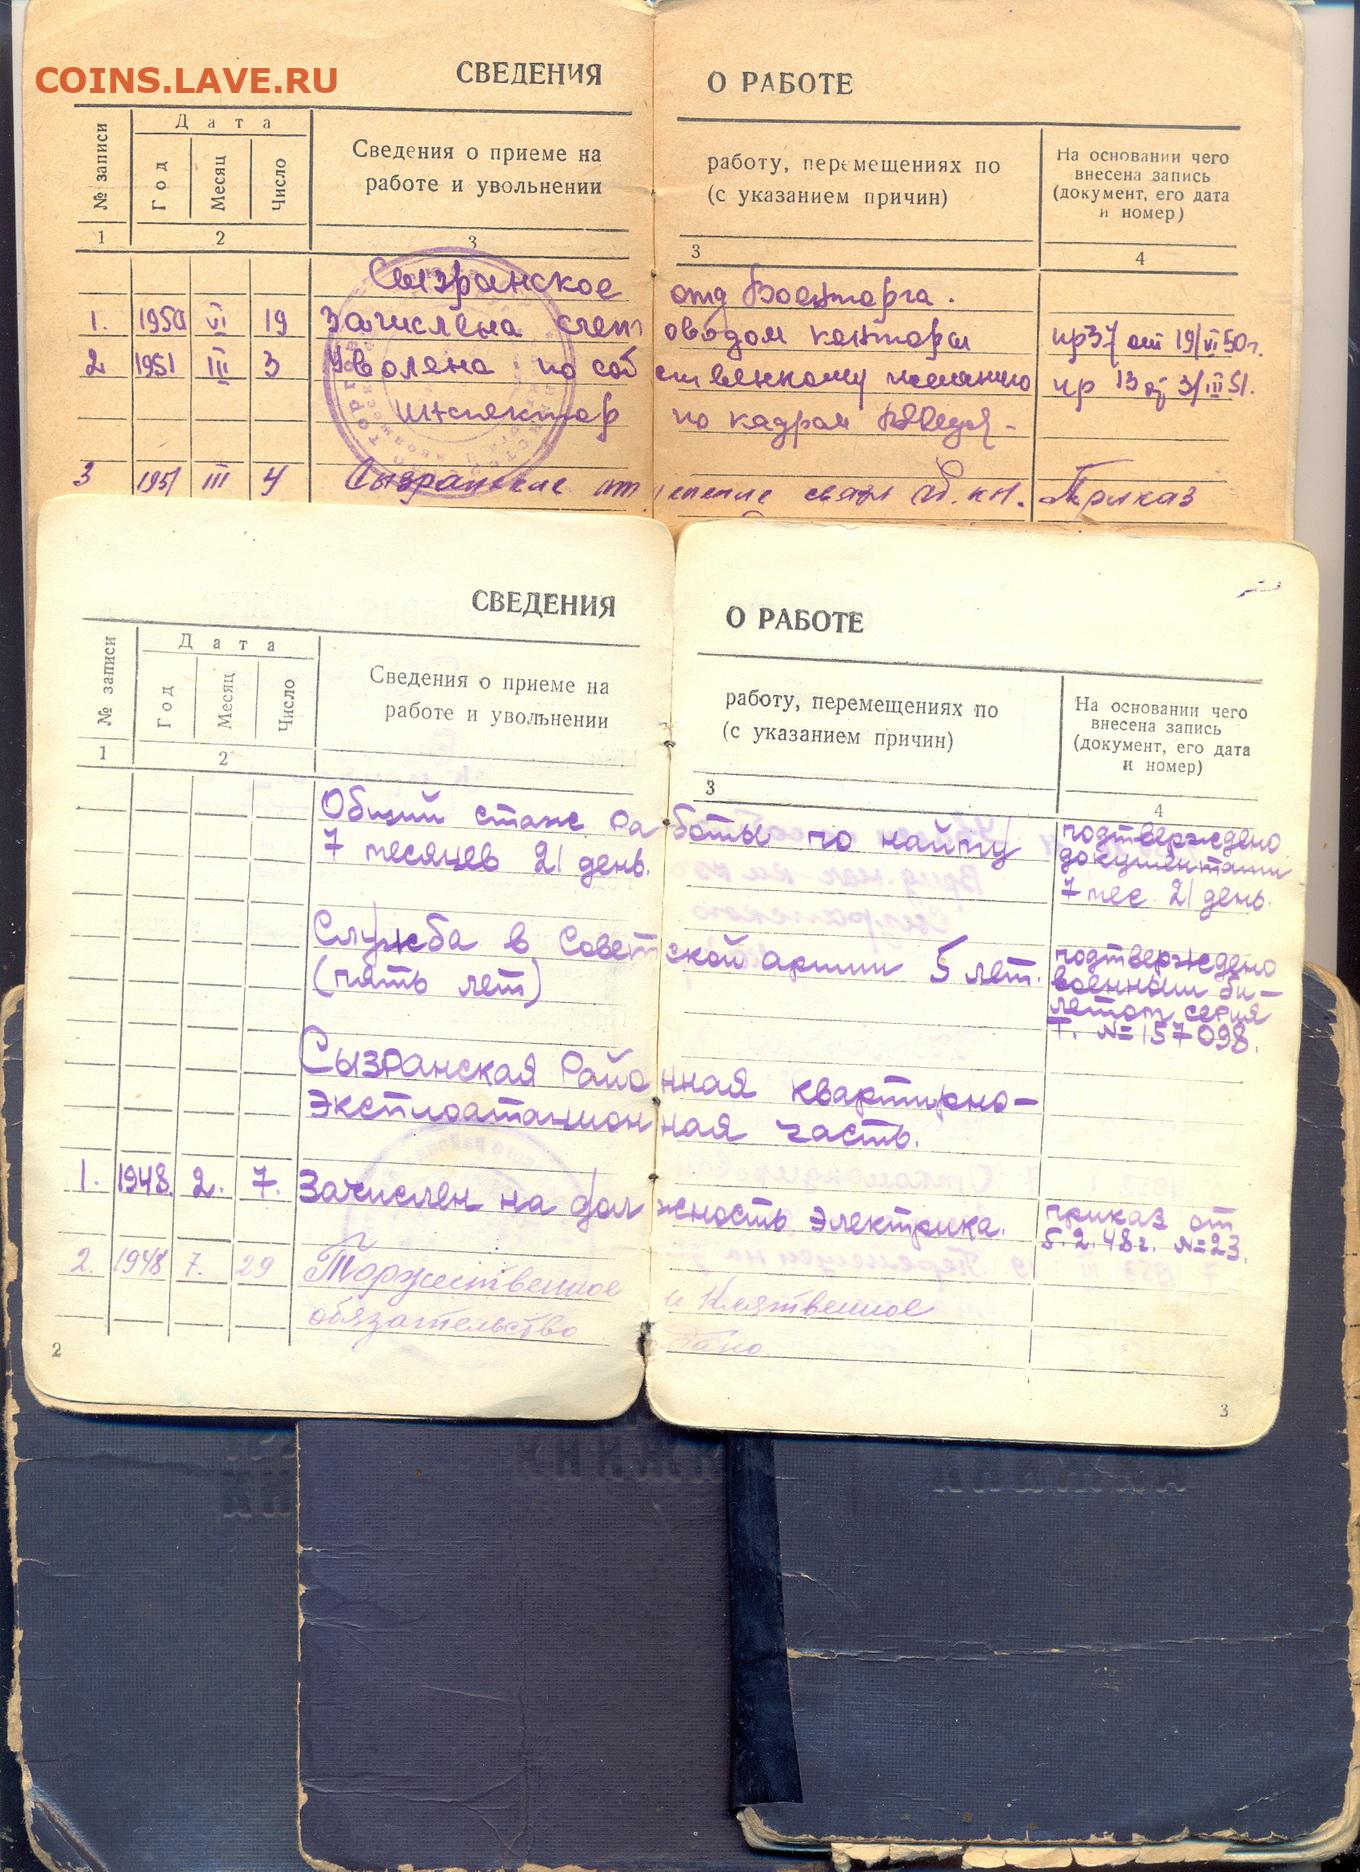 COINS.LAVE.RU
СВЕДЕНИЯ О РАБОТЕ
№ записи
Дата
Год
Месяц
Число
Сведения о приеме на работу, перемещениях по
работе и увольнении (с указанием причин)
На основании чего
внесена запись
(документ, его дата
и номер)
1 2 3 3 4
Сызранское отд Военторга.
1. 1950 VI 19 Зачислена счетоводом конторы пр37 от 19/VI 50г.
2 1951 III 3 Уволена по собственному желанию пр 13 от 3/III 51.
инспектор по кадрам
3 1951 III 4 Сызранское отделение связи Приказ
СВЕДЕНИЯ О РАБОТЕ
№ записи
Дата
Год
Месяц
Число
Сведения о приеме на работу, перемещениях по
работе и увольнении (с указанием причин)
На основании чего
внесена запись
(документ, его дата
и номер)
1 2 3 4
Общий стаж работы по найму подтверждено
7 месяцев 21 день. документами
7 мес. 21 день.
Служба в Советской армии 5 лет. подтверждено
(пять лет) военным би-
летом серия
Т. №157098.
Сызранская Районная квартирно-
эксплоатационная часть.
1. 1948. 2. 7. Зачислен на должность электрика. приказ от
5.2.48г. №23.
2. 1948 7. 29 Торжественное и Клятвенное
обязательство Дано
2 3